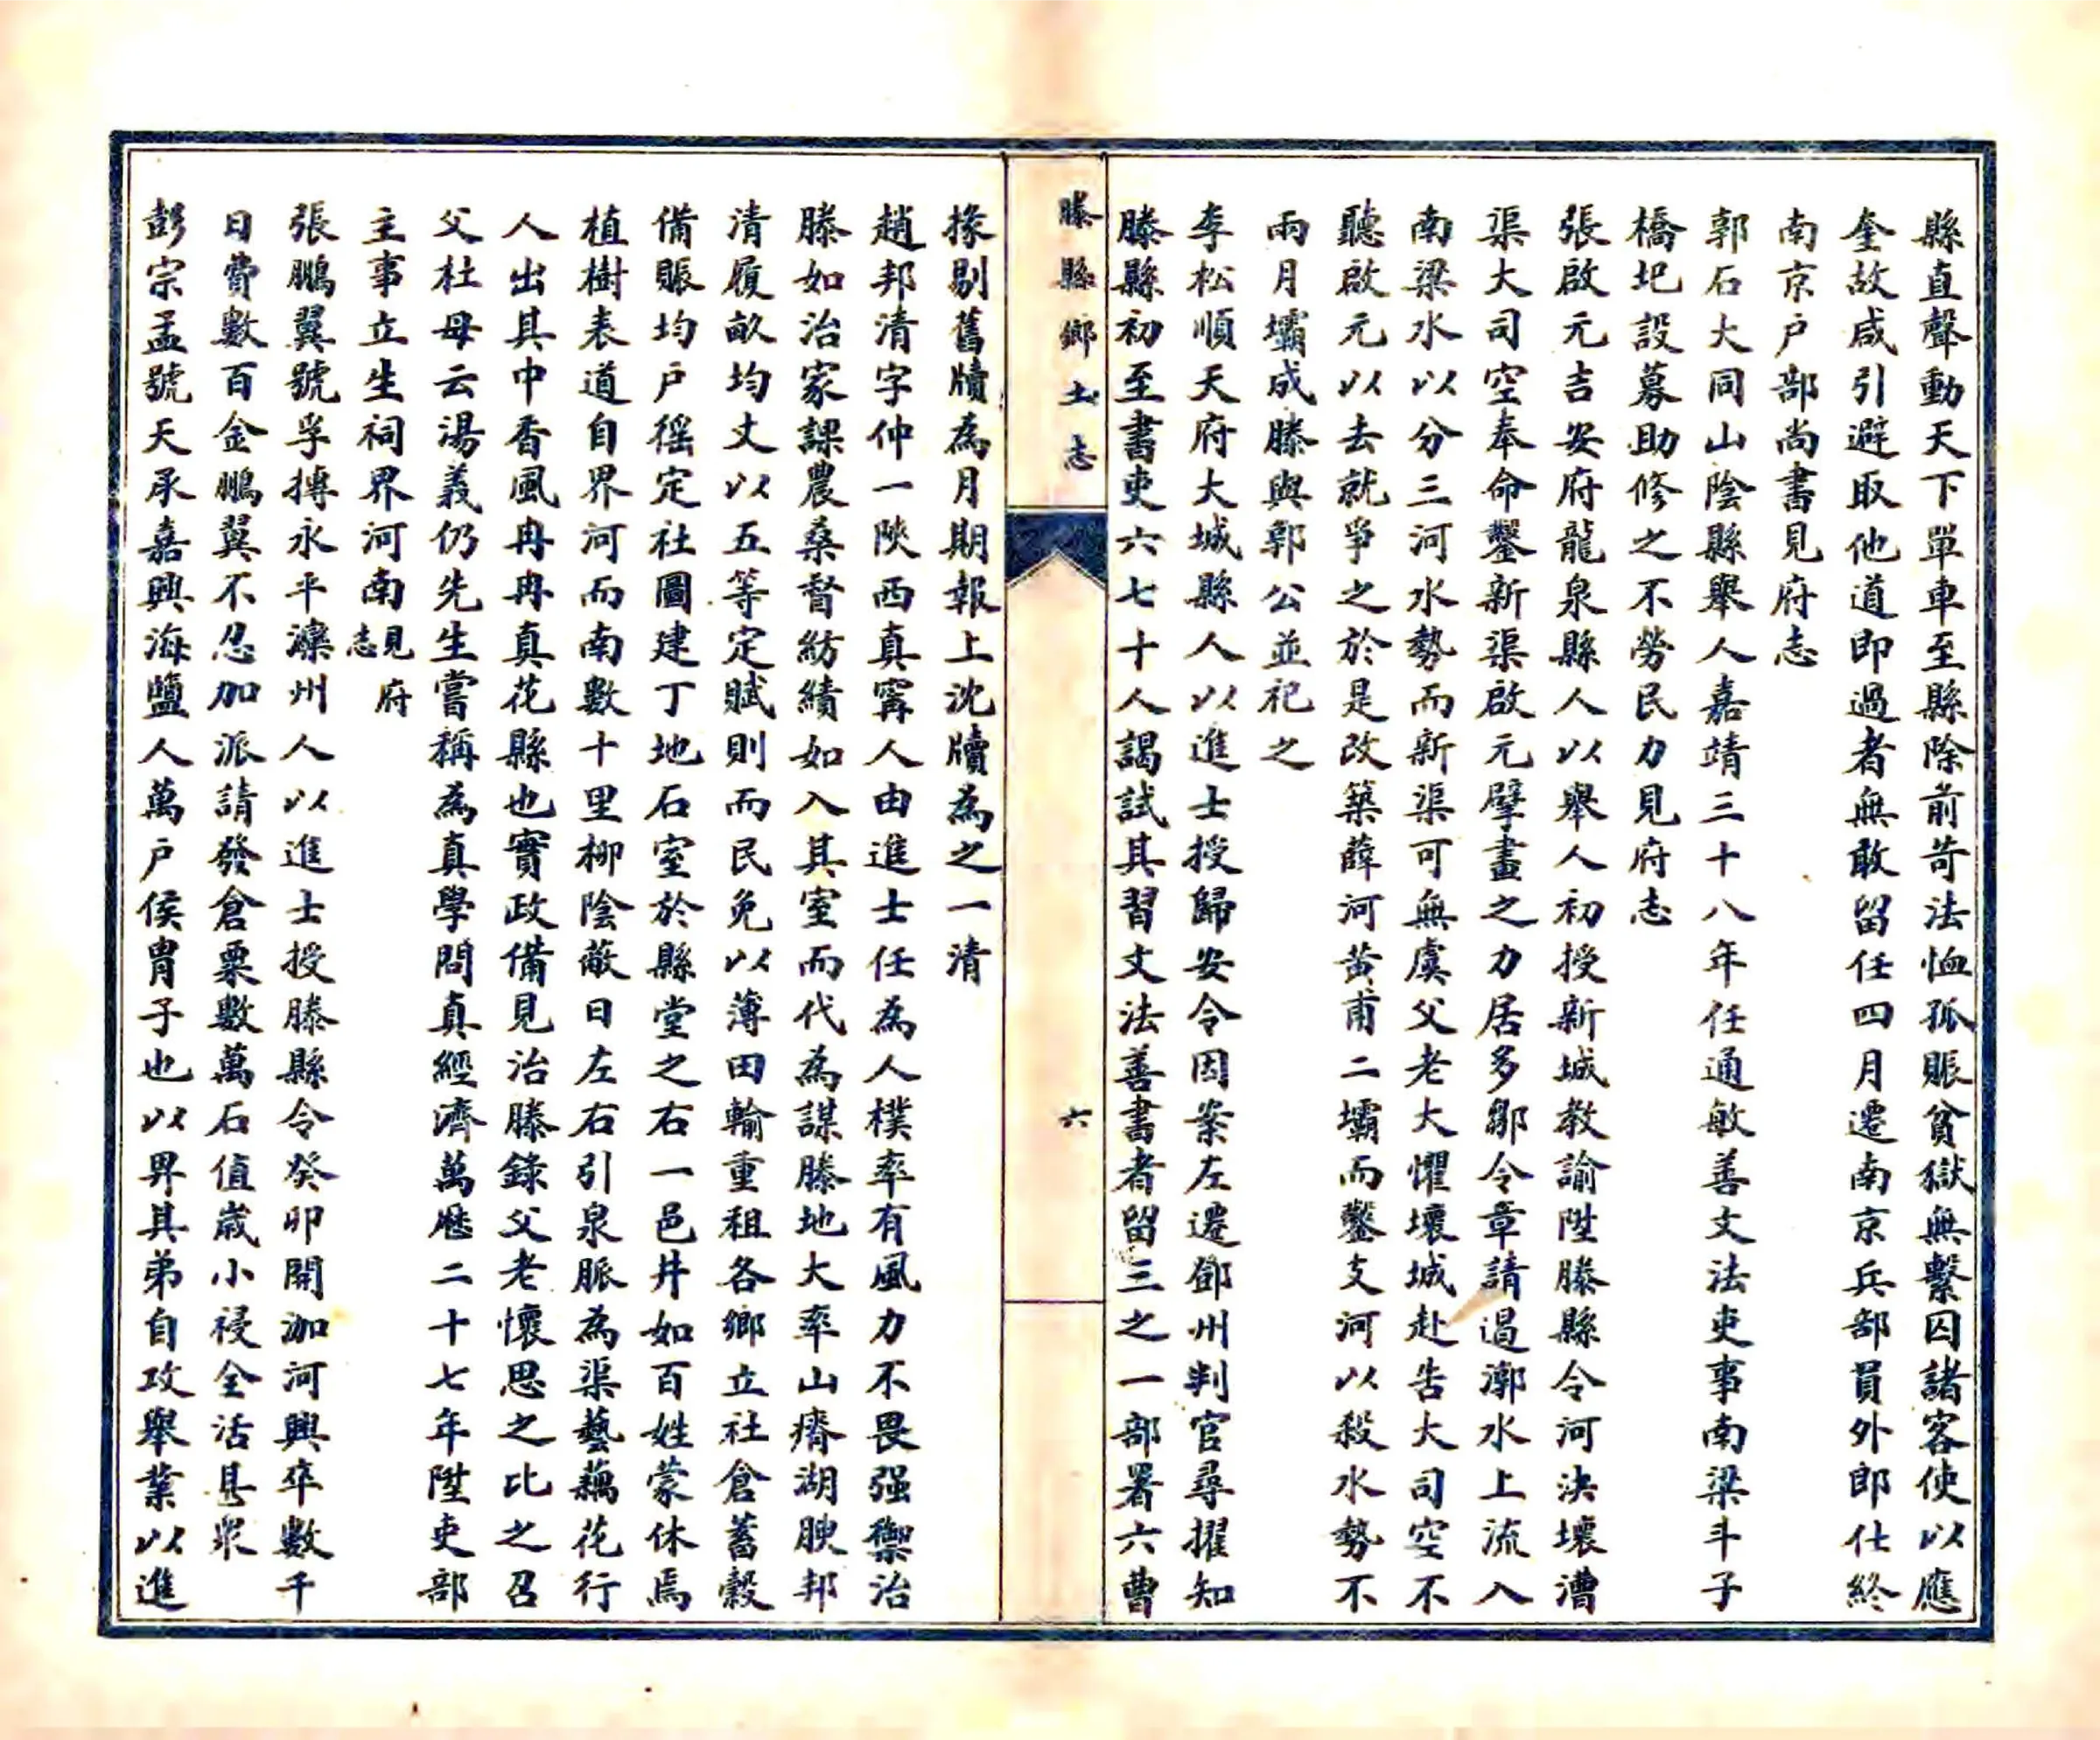 縣直聲動天下單車至縣除前苛法恤孤賑貧獄無繫囚諸客使以應
奎故咸引避取他道即過者無敢留任四月遷南京兵部員外郎仕終
南京户部尚書見府志
郭石大同山陰縣舉人嘉靖三十八年任通敏善文法吏事南梁斗子
橋圯設募助修之不勞民力見府志
張啟元吉安府龍泉縣人以舉人初授新城教諭陞滕縣令河決壞漕
渠大司空奉命鑿新渠啟元擘畫之力居多鄒令章請遏漷水上流入
南梁水以分三河水勢而新渠可無虞父老大懼壞城赴告大司空不
聽啟元以去就爭之於是改築薛河黃甫二壩而鑿支河以殺水勢不
兩月壩成滕與郭公並祀之
李松順天府大城縣人以進士授歸安令因案左遷鄧州判官尋擢知
滕縣初至書吏六七十人謁試其習文法善書者留三之一部署六曹
滕縣鄉土志
六
掾剔舊牘為月期報上沈牘為之一清
趙邦清字仲一陝西真寧人由進士任為人樸率有風力不畏强禦治
滕如治家課農桑督紡績如入其室而代為謀滕地大率山瘠湖腴邦
清履畝均丈以五等定賦則而民免以薄田輸重租各鄉立社倉蓄穀
備賑均户徭定社圖建丁地石室於縣堂之右一邑井如百姓蒙休焉
植樹表道自界河而南數十里柳陰蔽日左右引泉脈為渠藝藕花行
人出其中香風冉冉真花縣也實政備見治滕錄父老懷思之比之召
父杜母云湯義仍先生嘗稱為真學問真經濟萬歷二十七年陞吏部
主事立生祠界河南見府志
張鵬翼號孚摶永平灤州人以進士授滕縣令癸卯開泇河興卒數千
日費數百金鵬翼不忍加派請發倉粟數萬石值歲小祲全活甚眾
彭宗孟號天承嘉興海鹽人萬户侯胄子也以畀其弟自攻舉業以進